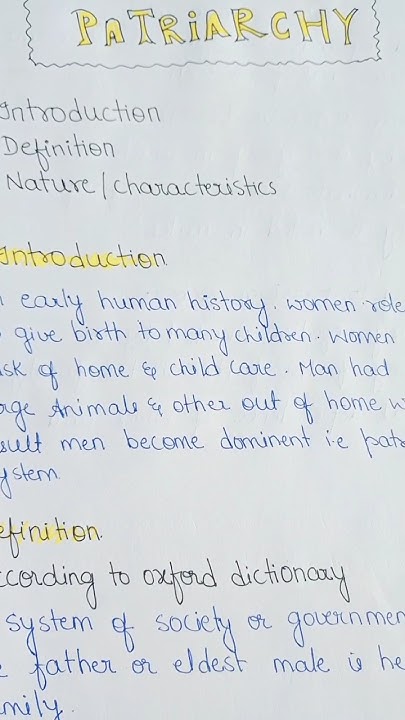 PATRIARCHY
Introduction
Definition
Nature/characteristics
Introduction
early human history. women role
give birth to many children. Women
of home & child care. Man had
Animals & other out of home
men become dominent i.e

Definition.
according to oxford dictionary
system of society or governmen
father or eldest male is he